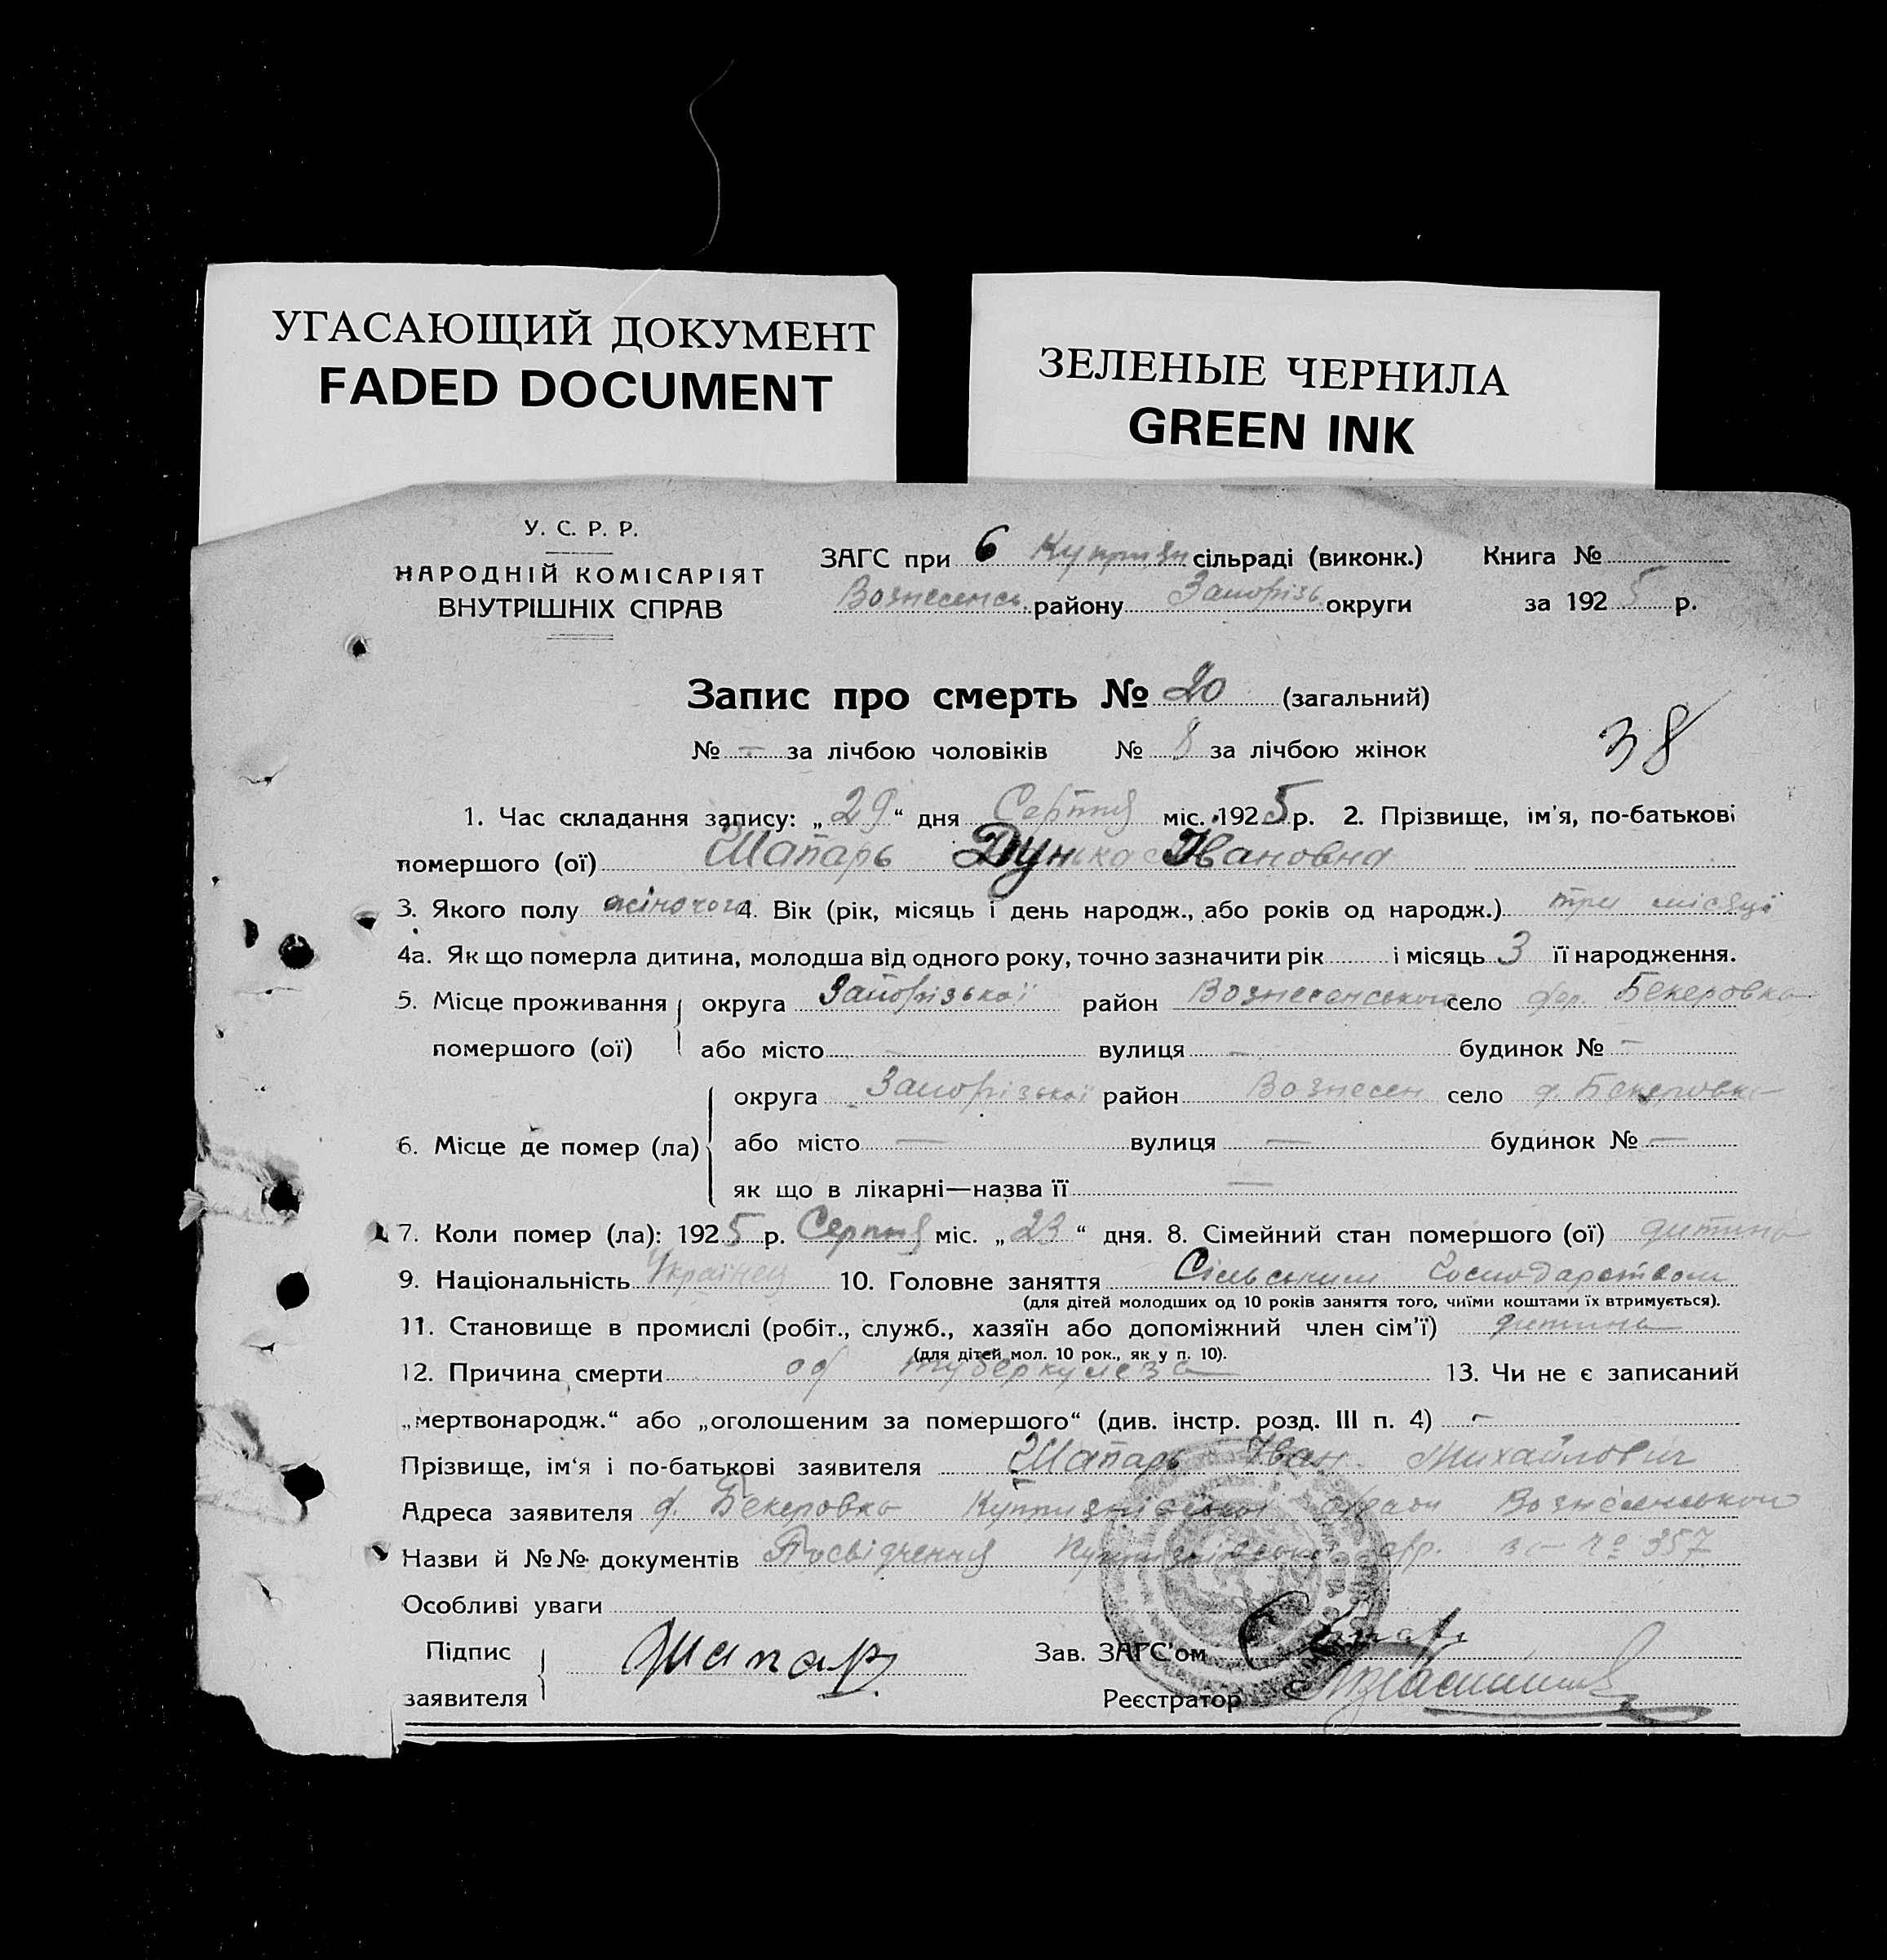 УГАСАЮЩИЙ ДОКУМЕНТ
FADED DOCUMENT
ЗЕЛЕНЫЕ ЧЕРНИЛА
GREEN INK
У. С. Р. Р.
НАРОДНІЙ КОМІСАРІЯТ
ВНУТРІШНІХ СПРАВ
ЗАГС при 6 сільраді (виконк.) Книга №
Вознесенсь. району Запорізь. округи за 1925 р.
Запис про смерть № 20 (загальний)
№ — за лічбою чоловіків № 8 за лічбою жінок
38
1. Час складання запису: „29“ дня Серпня міс. 1925 р. 2. Прізвище, ім'я, по-батькові
помершого (ої) Шапарь Дунька Івановна
3. Якого полу жіночого 4. Вік (рік, місяць і день народж., або років од народж.) три місяці
4а. Як що померла дитина, молодша від одного року, точно зазначити рік і місяць 3 її народження.
5. Місце проживання округа Запорізької район Вознесенського село Бекеровка
помершого (ої) або місто — вулиця — будинок № —
округа Запорізької район Вознесен село ф. Бекеровка
6. Місце де помер (ла) або місто — вулиця — будинок № —
як що в лікарні—назва її —
7. Коли помер (ла): 1925 р. Серпня міс. „23“ дня. 8. Сімейний стан помершого (ої) дитина
9. Національність Українец 10. Головне заняття Сільським господарством
(для дітей молодших од 10 років заняття того, чиїми коштами їх втримується).
11. Становище в промислі (робіт., служб., хазяїн або допоміжний член сім'ї) дитина
(для дітей мол. 10 рок., як у п. 10).
12. Причина смерти од туберкулеза 13. Чи не є записаний
„мертвонародж.“ або „оголошеним за помершого“ (див. інстр. розд. III п. 4) —
Прізвище, ім'я і по-батькові заявителя Шапарь Іван Михайлович
Адреса заявителя ф. Бекеровка
Назви й №№ документів Посвідчення 357
Особливі уваги
Підпис
заявителя Шапар
Зав. ЗАГС'ом
Реєстратор